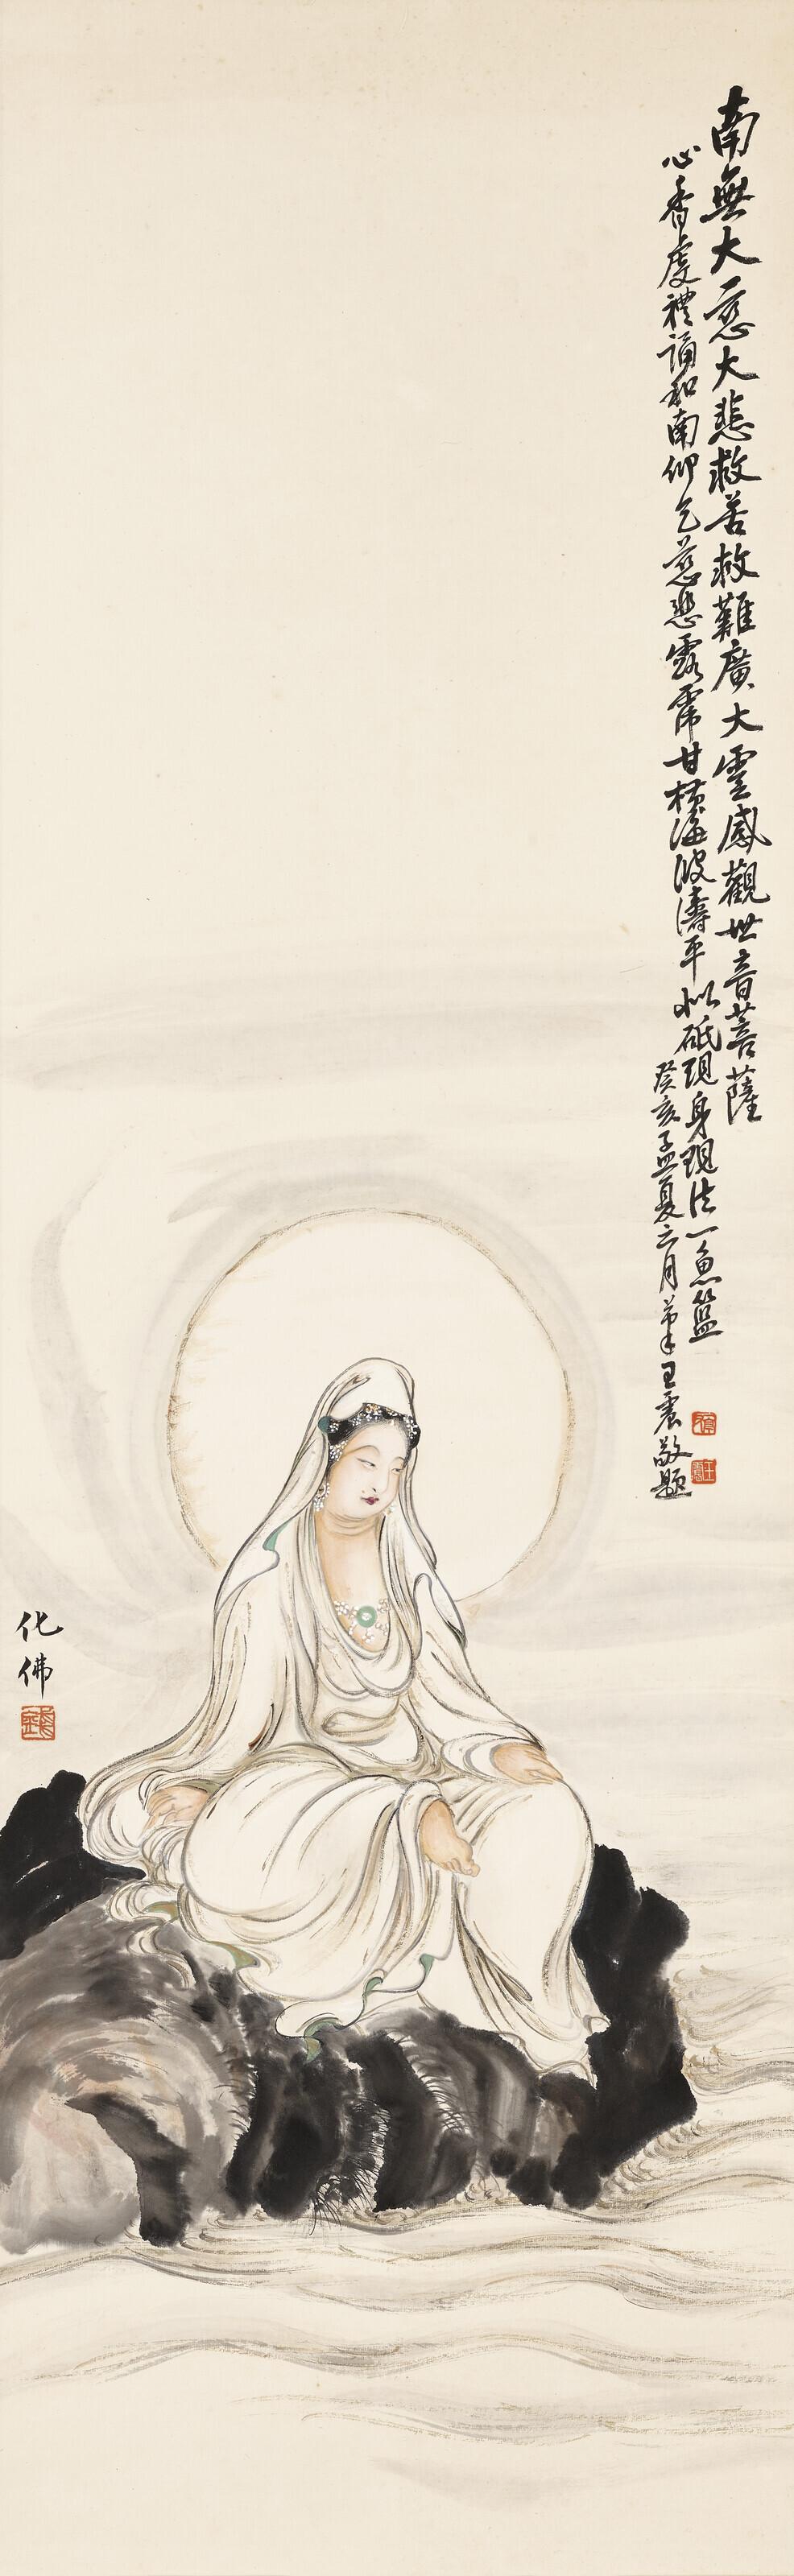 南無大慈大悲救苦救難廣大靈感觀世音菩薩
心香虔禮誦和南仰乞慈悲露霈甘橫海波濤平似砥現身現法一魚籃
癸亥孟夏之月 王震敬題
化佛
王震